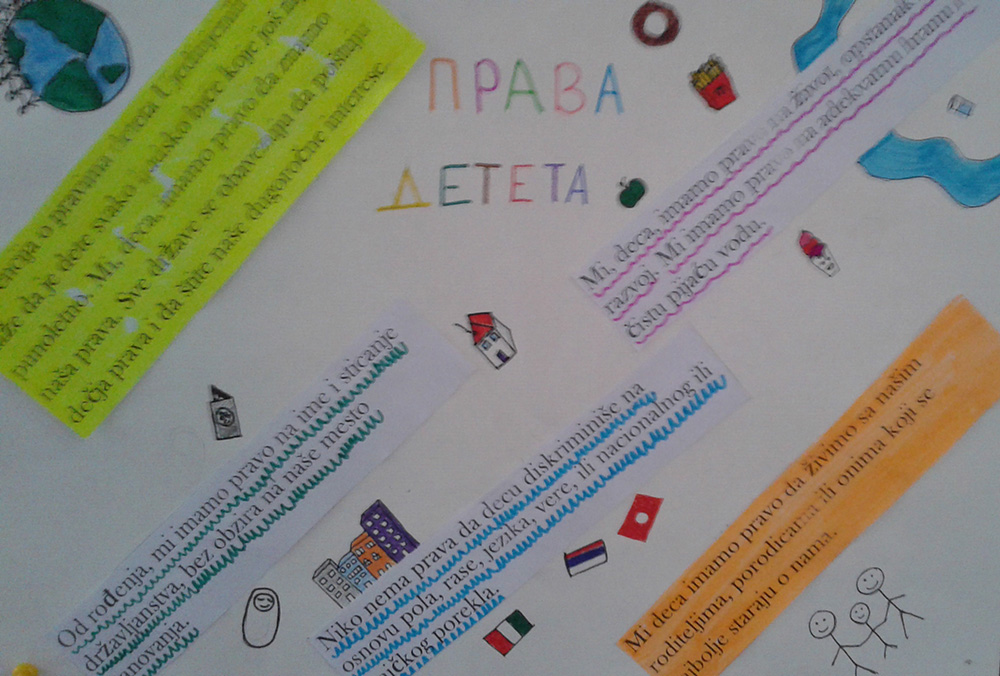 ПРАВА
ДЕТЕТА
o pravima deteta
da je dete svako ljudsko biće koje još nije
punoletno. Mi, deca, imamo pravo da znamo
naša prava. Sve države se obavezuju da poštuju
dečja prava i da štite naše dugoročne interese.
Mi, deca, imamo pravo na život, opstanak
razvoj. Mi imamo pravo na adekvatnu hranu i
čistu pijaću vodu.
Od rođenja, mi imamo pravo na ime i sticanje
državljanstva, bez obzira na naše mesto
Niko nema prava da decu diskriminiše na
osnovu pola, rase, jezika, vere, ili nacionalnog ili
porekla.
Mi deca imamo pravo da živimo sa našim
roditeljima, porodicama ili onima koji se
staraju o nama.